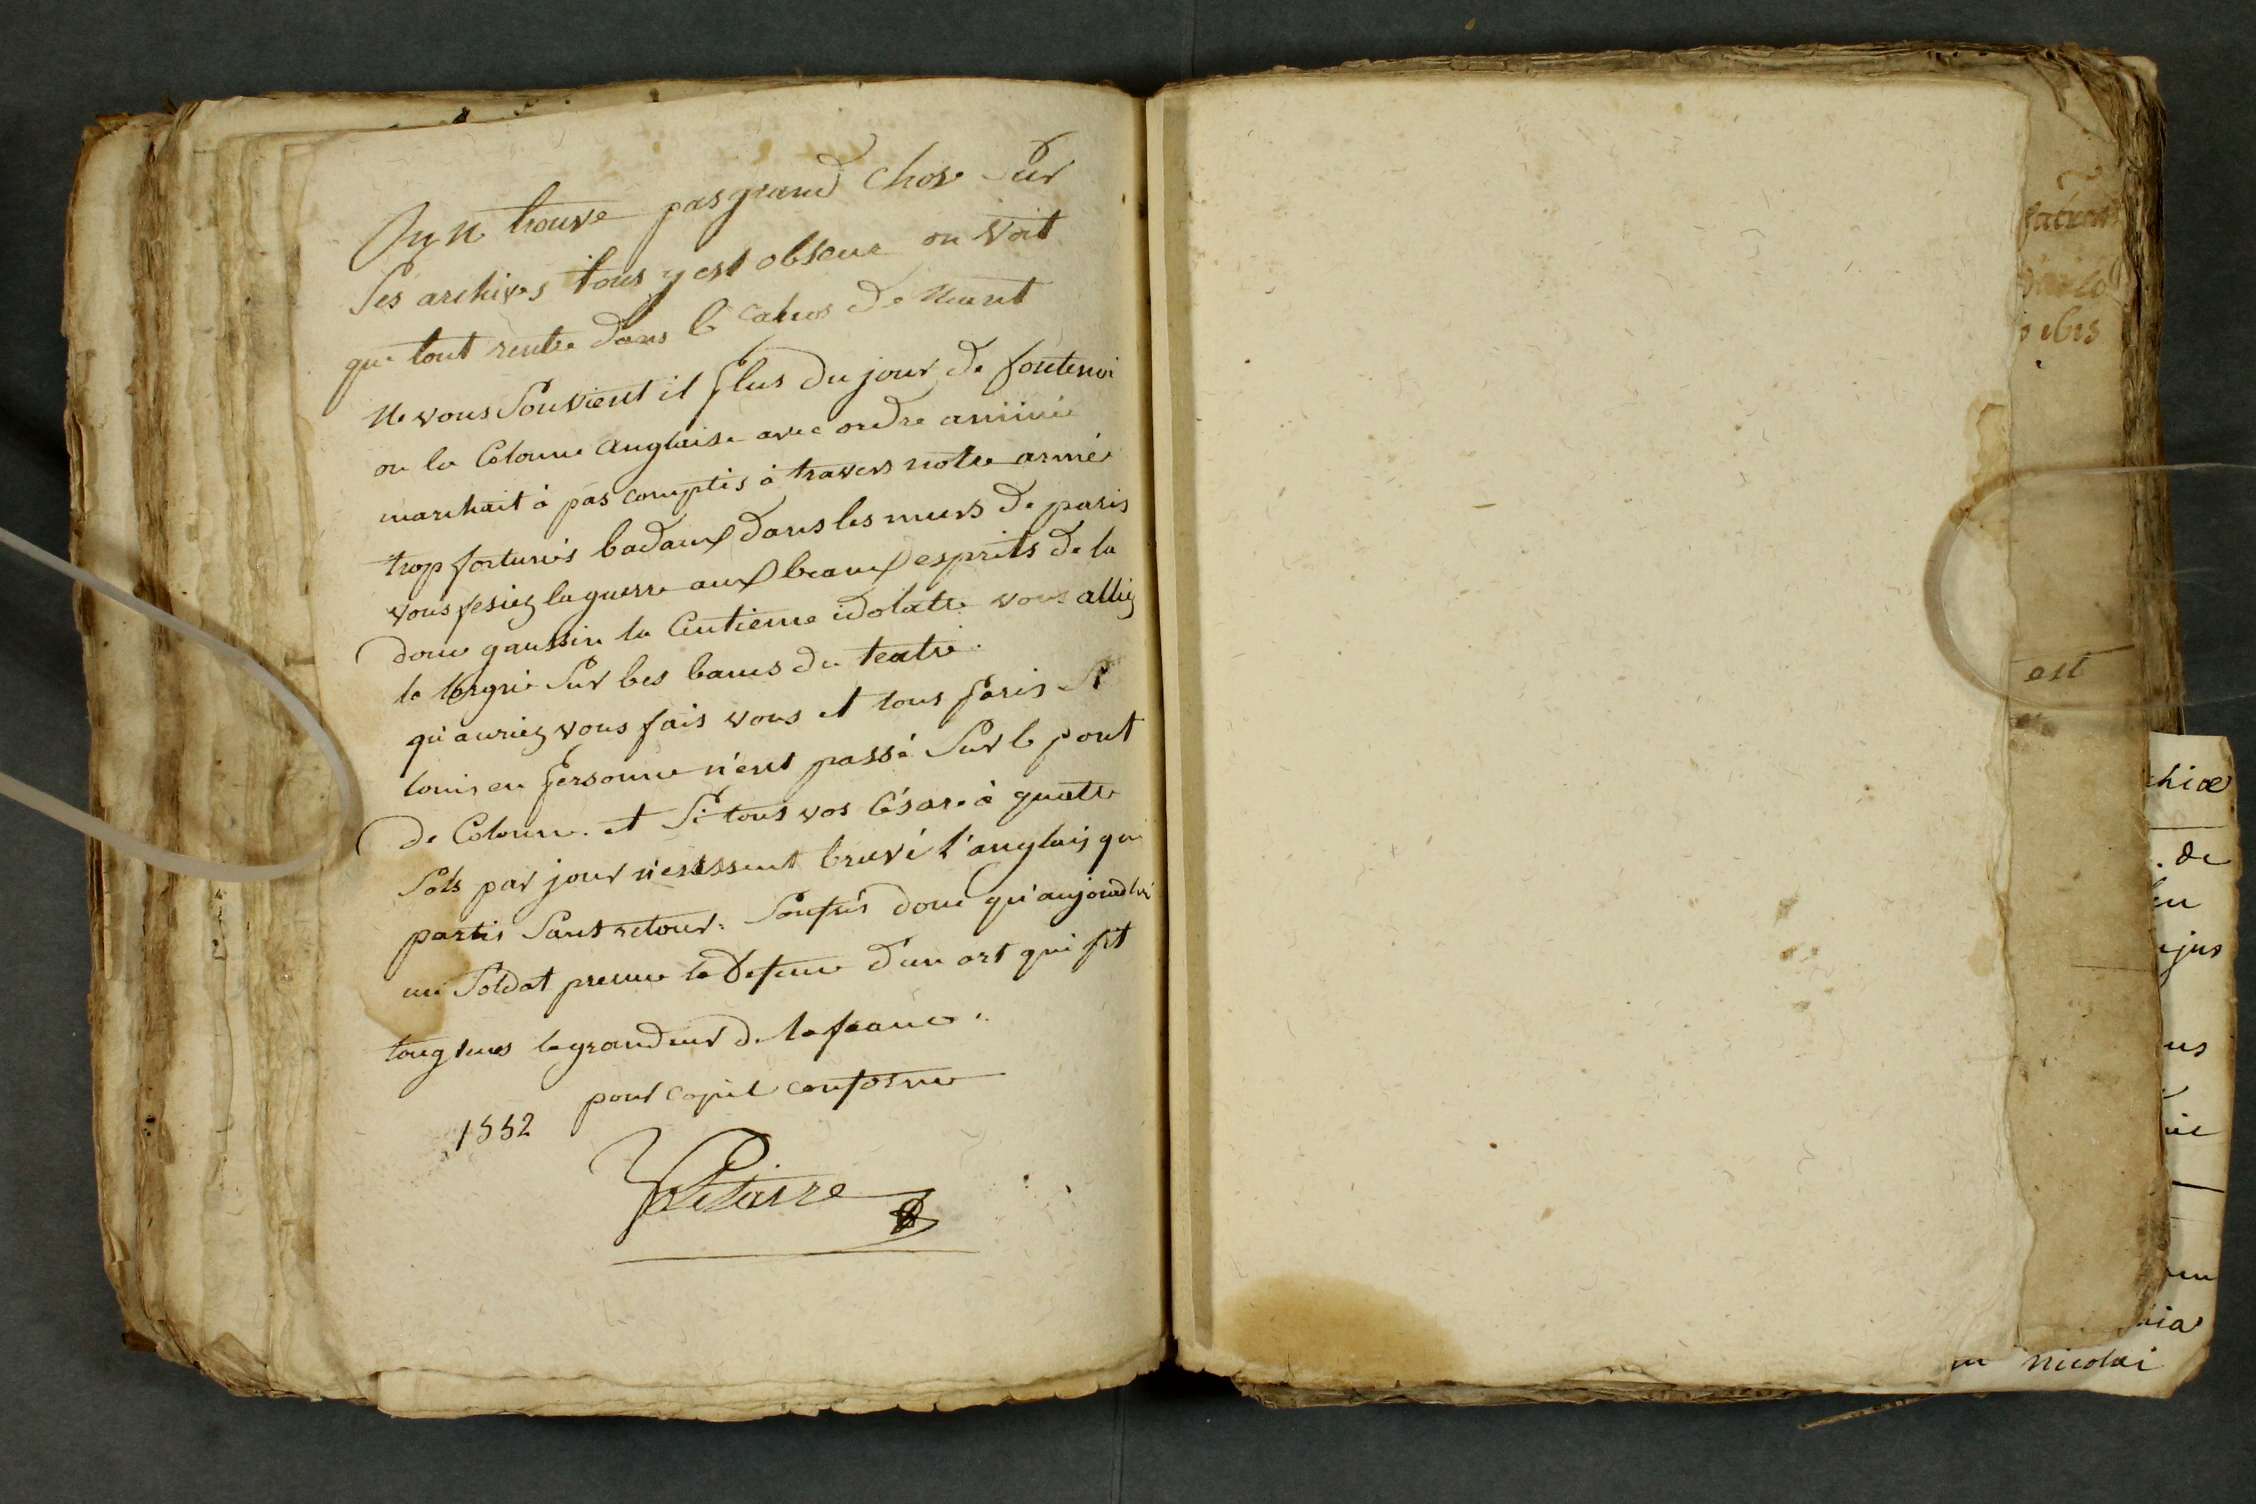 Jy n trouve pas grand chose Sur
Ses archives tous y est obscur on voit
que tout rentre dans le cahos de neant
Ne vous Souvient il plus du jour de fontenoi
ou la Colonne anglaise avec ordre animé
marchait à pas comptés à travers notre armé
trop fortunés badaux dans les murs de paris
vous fesiez la guerre aux beaux esprits de la
donc gaussin la Centieme idolatre vous alliez
la lorgné Sur les bancs du teatre.
qu'auriez vous fais vous et tous Paris Si
louis en personne n'eut passé Sur le pont
de Colonne. et Si tous vos Césare à quatre
Sols par jour n'eussent bravé l'anglais qui
partis Sans retour. Soufrés donc qu'aujourdhui
un Soldat prenne la Defence d'un art qui fit
longtems la grandeur de la france.
pour copie conforme
1552
Voltaire
est
hiæ
de
jus
us
nia
nicolai